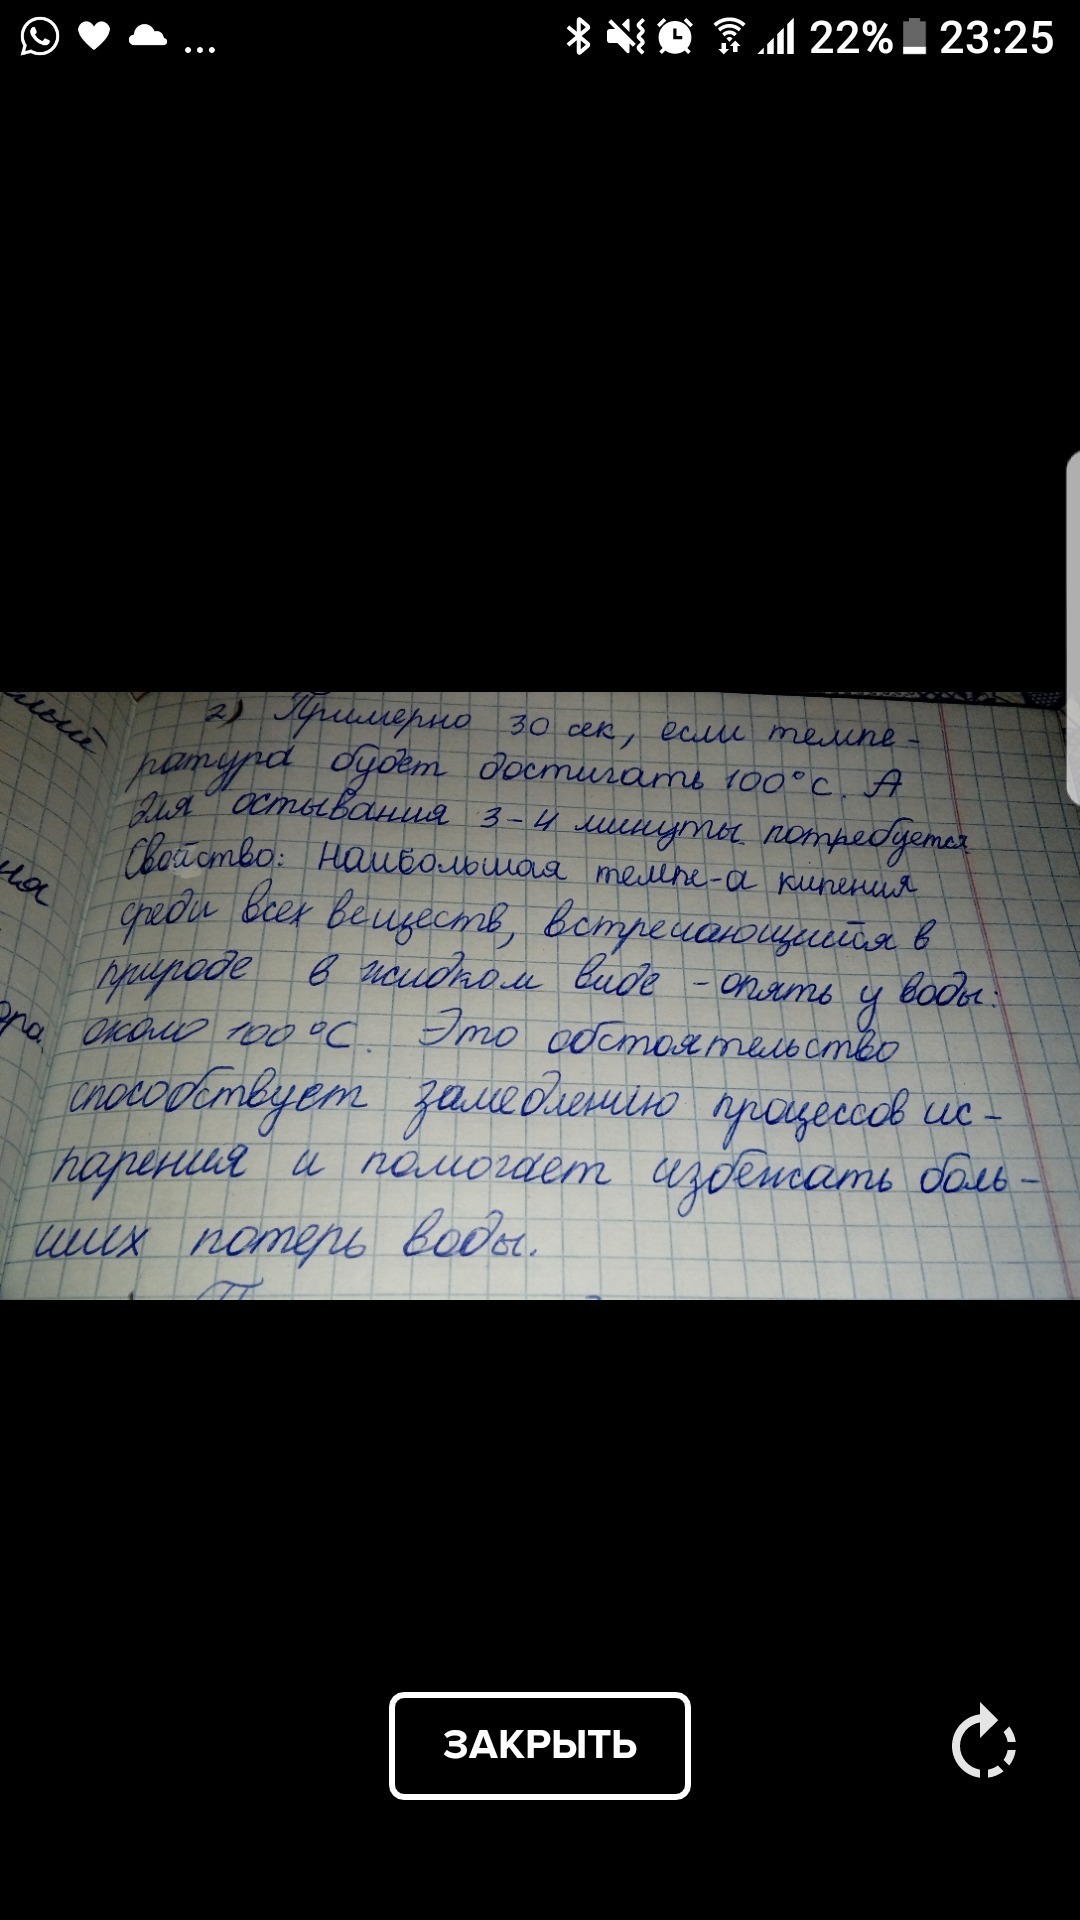 ... 22% 23:25
2) Примерно 30 сек, если темпе-
ратура будет достигать 100°С. А
для остывания 3-4 минуты потребуется
Свойство: Наибольшая темпе-а кипения
среди всех веществ, встречающийся в
природе в жидком виде - опять у воды:
около 100°С. Это обстоятельство
способствует замедлению процессов ис-
парения и помогает избежать боль-
ших потерь воды.
ЗАКРЫТЬ